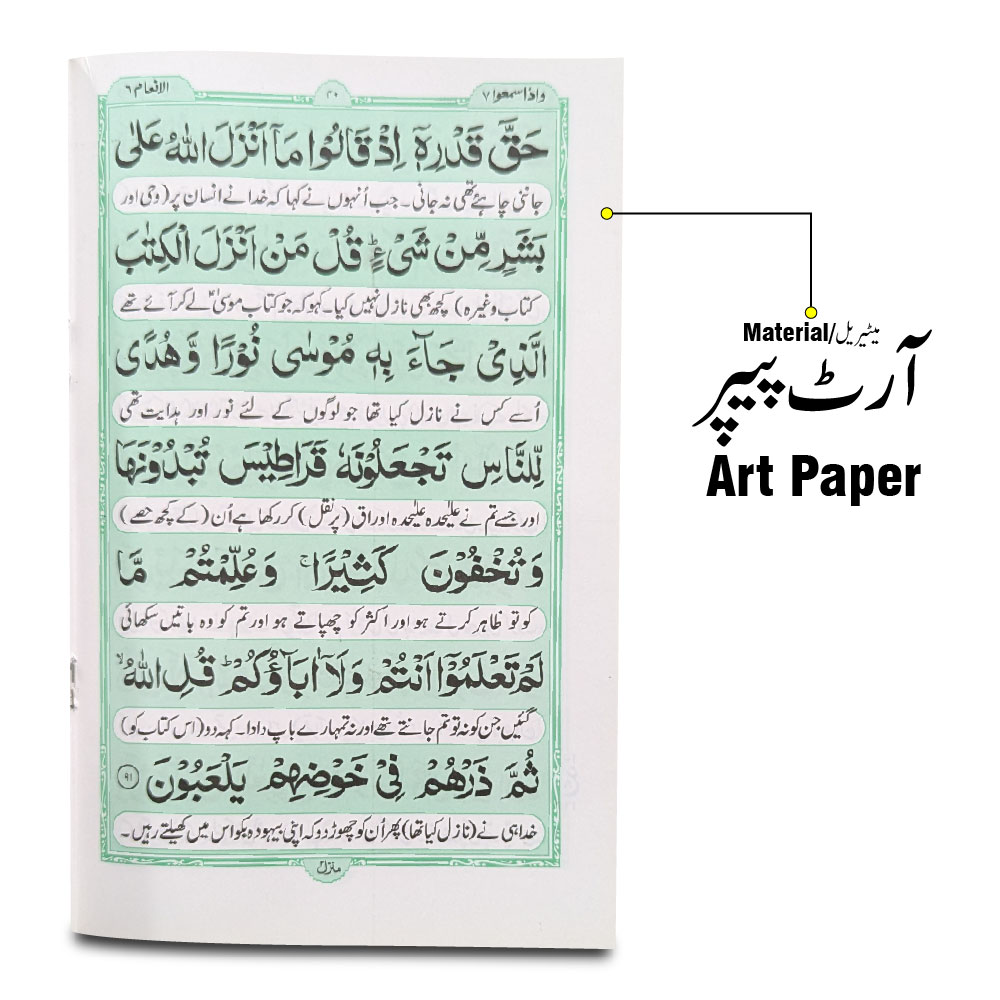 واذا سمعوا ٧
٣٠
الانعام ٦
حَقَّ قَدْرِهٖۤ اِذْ قَالُوْا مَاۤ اَنْزَلَ اللّٰهُ عَلٰى
جاننی چاہئے تھی نہ جانی۔ جب اُنہوں نے کہا کہ خدا نے انسان پر (وحی اور
بَشَرٍ مِّنْ شَیْءٍؕ قُلْ مَنْ اَنْزَلَ الْكِتٰبَ
کتاب وغیرہ) کچھ بھی نازل نہیں کیا۔ کہو کہ جو کتاب موسیٰؑ لے کر آئے تھے
الَّذِیْ جَآءَ بِهٖ مُوْسٰى نُوْرًا وَّ هُدًى
اُسے کس نے نازل کیا تھا جو لوگوں کے لئے نور اور ہدایت تھی
لِّلنَّاسِ تَجْعَلُوْنَهٗ قَرَاطِیْسَ تُبْدُوْنَهَا
اور جسے تم نے علیٰحدہ علیٰحدہ اوراق (پر نقل) کر رکھا ہے اُن (کے کچھ حصے)
وَ تُخْفُوْنَ كَثِیْرًاۚ وَ عُلِّمْتُمْ مَّا
کو تو ظاہر کرتے ہو اور اکثر کو چھپاتے ہو اور تم کو وہ باتیں سکھائی
لَمْ تَعْلَمُوْۤا اَنْتُمْ وَ لَاۤ اٰبَآؤُكُمْؕ قُلِ اللّٰهُۙ
گئیں جن کو نہ تو تم جانتے تھے اور نہ تمہارے باپ دادا۔ کہہ دو (اس کتاب کو)
ثُمَّ ذَرْهُمْ فِیْ خَوْضِهِمْ یَلْعَبُوْنَ ٩١
خدا ہی نے (نازل کیا تھا) پھر اُن کو چھوڑ دو کہ اپنی بیہودہ بکواس میں کھیلتے رہیں۔
منزل٢
Material/میٹیریل
آرٹ پیپر
Art Paper